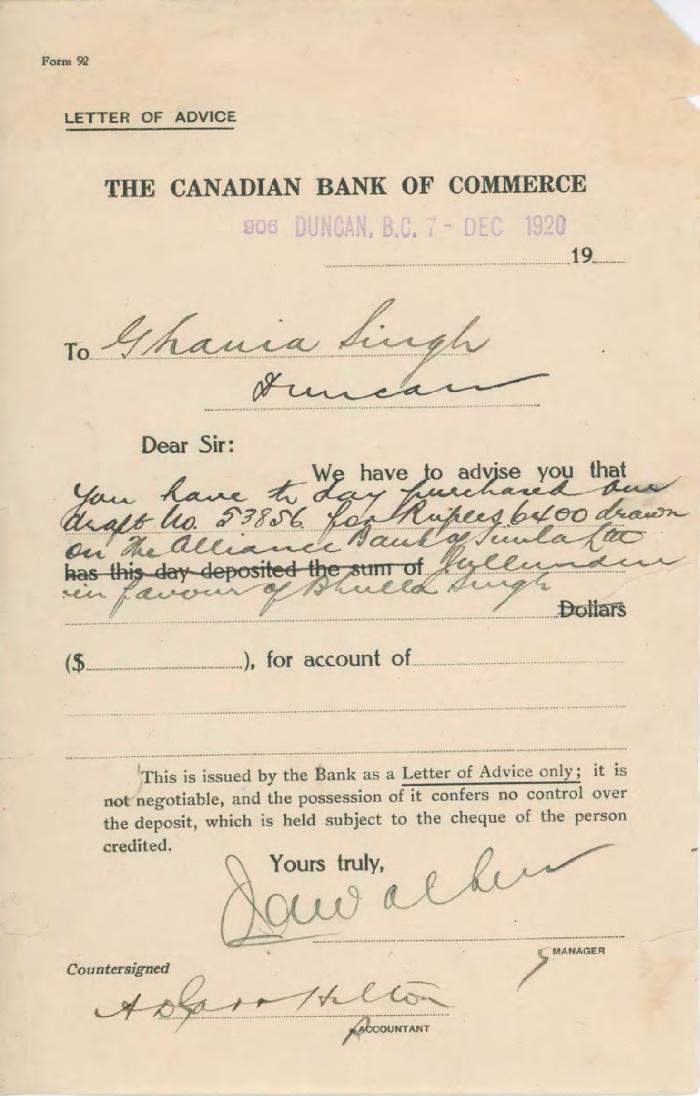 Form 92
LETTER OF ADVICE
THE CANADIAN BANK OF COMMERCE
906 DUNCAN, B.C. 7 - DEC 1920
19
To Ghania Singh
Duncan
Dear Sir:
We have to advise you that
You have to day purchased our
draft No. 53856 for Rupees 6400 drawn
on The Alliance Bank of Simla Ltd
has this day deposited the sum of Jullunder
in favour of Bhulla Singh
Dollars
($ ), for account of
This is issued by the Bank as a Letter of Advice only; it is
not negotiable, and the possession of it confers no control over
the deposit, which is held subject to the cheque of the person
credited.
Yours truly,
MANAGER
Countersigned
Hilton
ACCOUNTANT